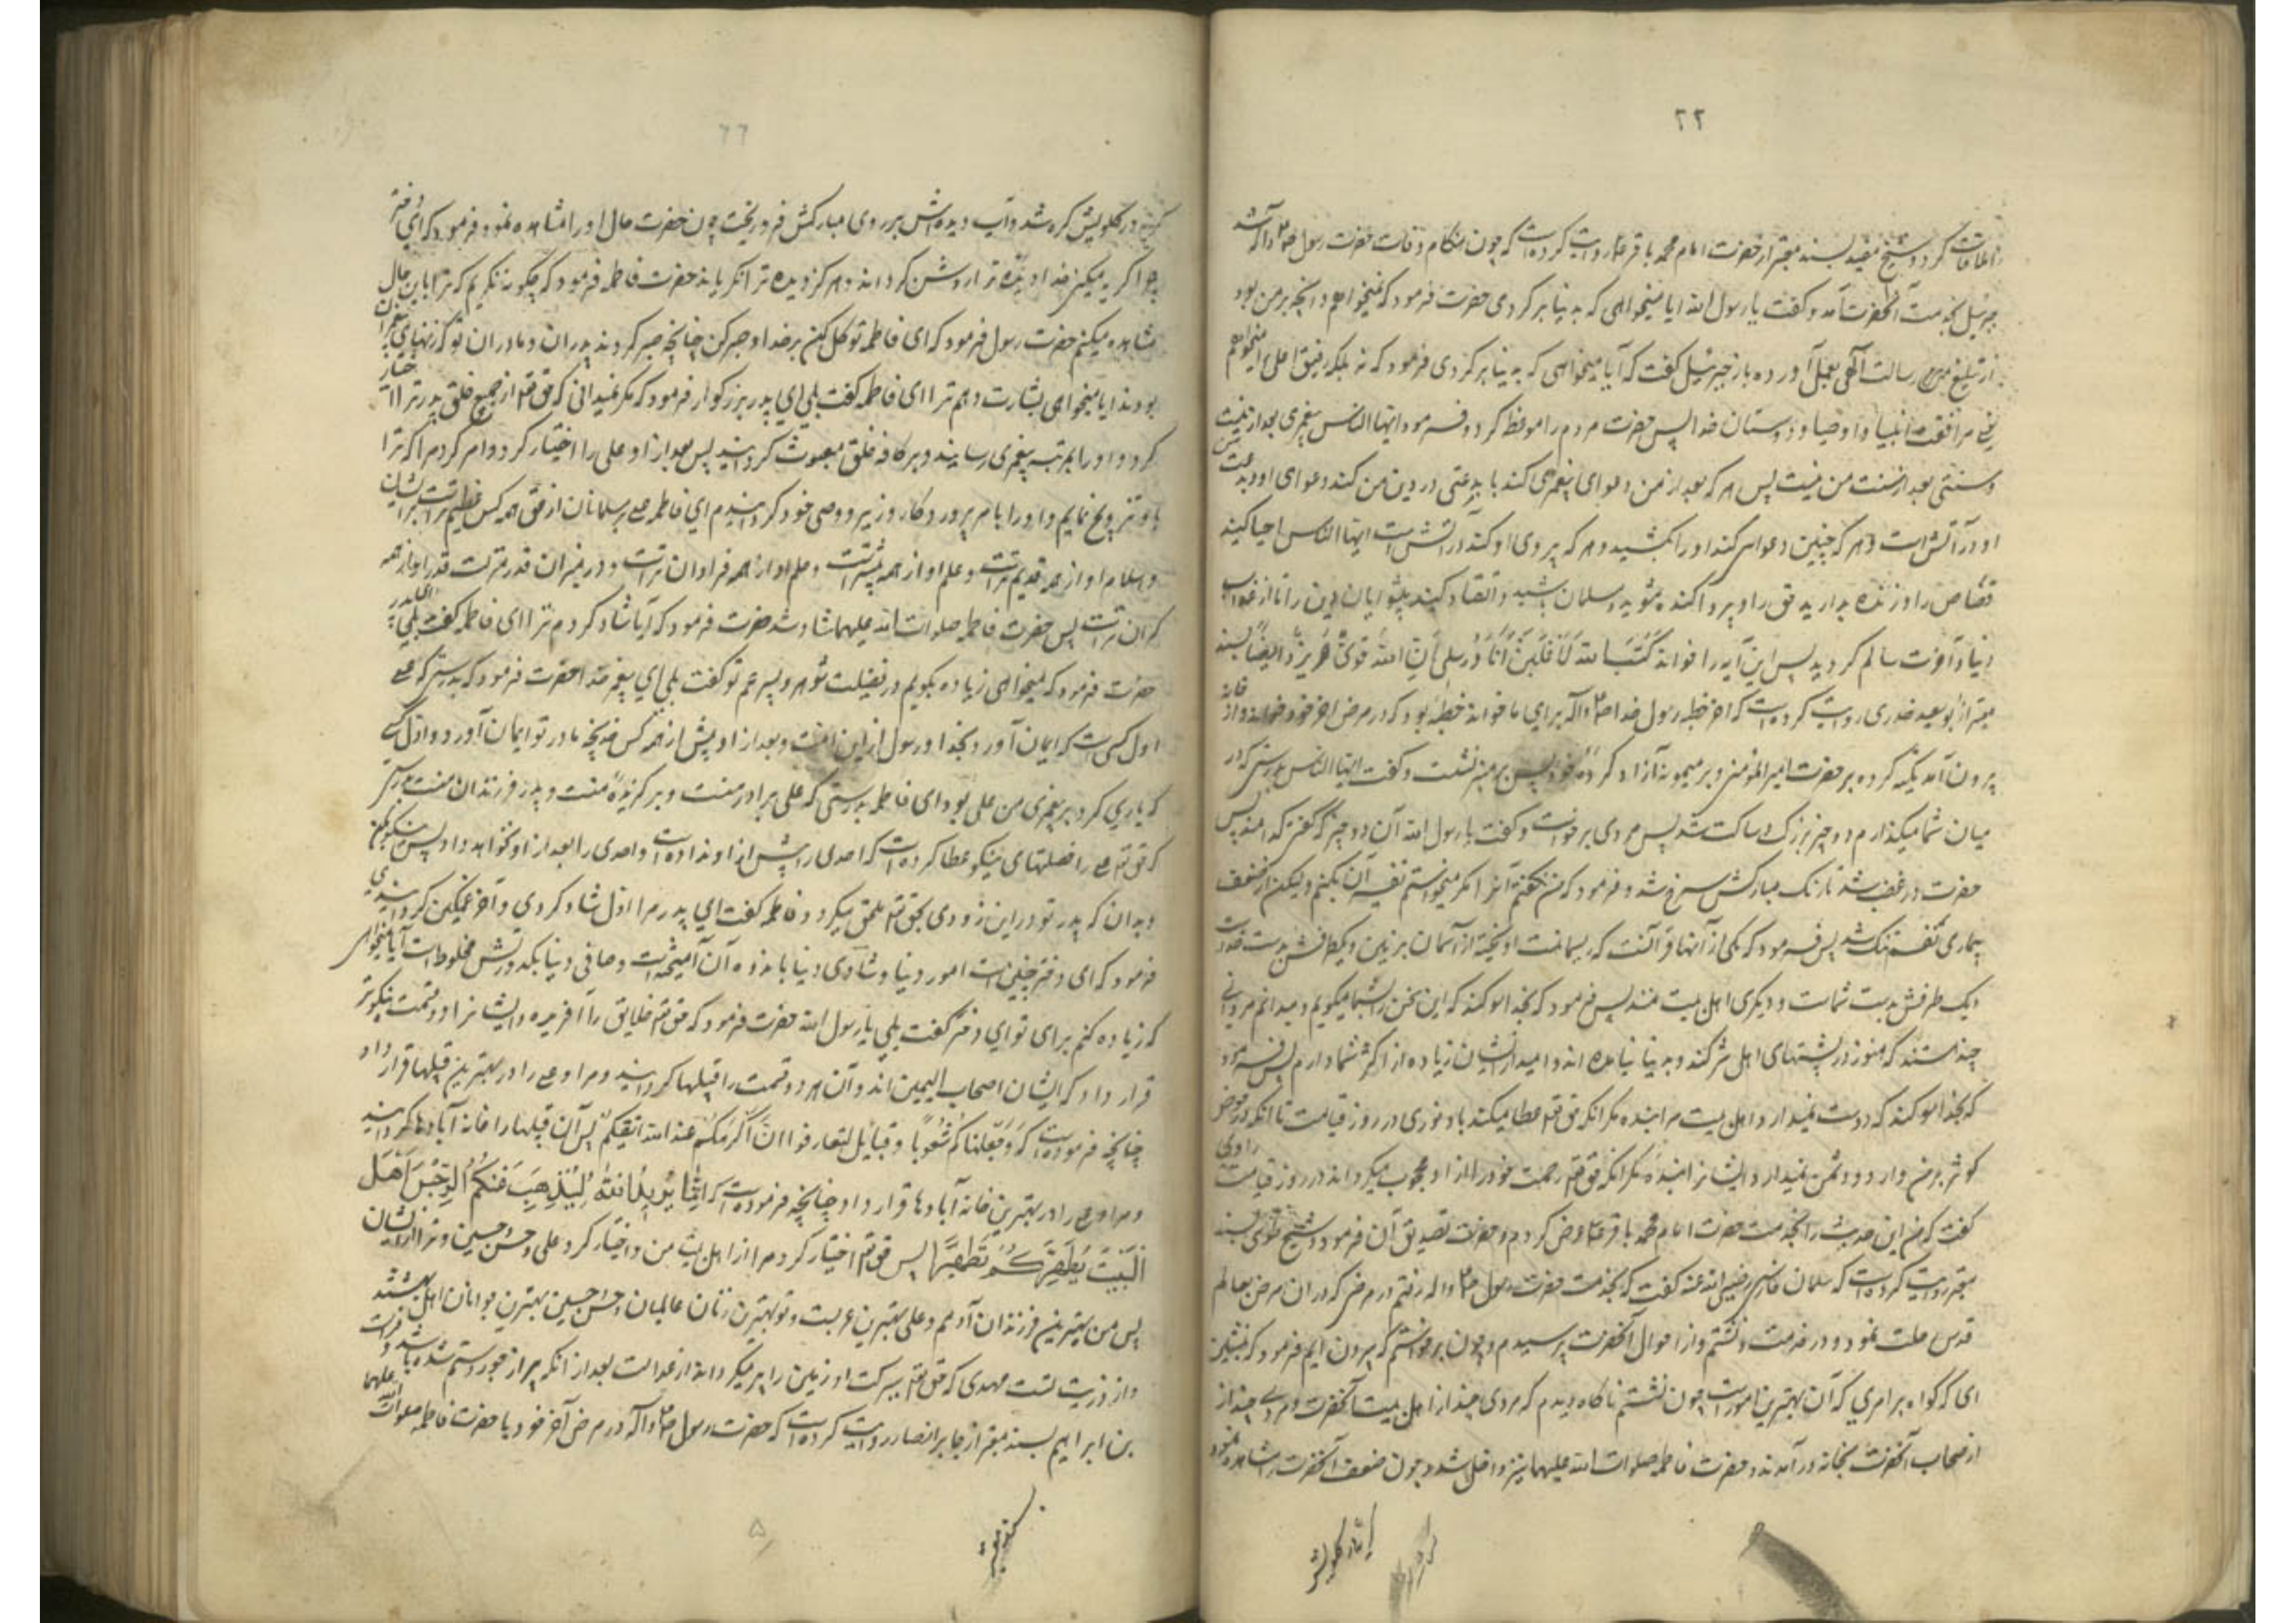 ۲۲
ملاقات کرد و شیخ مفید بسند معتبر از حضرت امام محمد باقر ع روایت کرده است که چون هنگام وفات حضرت رسول ص واله شد
جبرئیل بخدمت آنحضرت آمد و گفت یا رسول الله ایا میخواهی که به دنیا برگردی حضرت فرمود که نمیخواهم و انچه بر من بود
از تبلیغ رسالت الهی بعمل آورده باز جبرئیل گفت که آیا میخواهی که به دنیا برگردی فرمود که نه بلکه رفیق اعلی را میخواهم
یعنی مرافقت انبیا و اوصیا و دوستان خدا پس حضرت مردم را موعظه کرد و فرمود ایها الناس پیغمبری بعد از من نیست
و سنتی بعد از سنت من نیست پس هر که بعد از من دعوای پیغمبری کند یا بدعتی در دین من کند دعوای او و بدعت
او در آتش است و هر که چنین دعوا کند او را بکشید و هر که پیروی او کند در آتش است ایها الناس احیا کنید
قصاص را و زنده بدارید حق را و پراکنده مشوید و مسلمان باشید و انقیاد کنید پیشوایان دین را تا از عذاب
دنیا و آخرت سالم گردید پس این آیه را خواند کَتَبَ الله لَأَغْلِبَنَّ أَنَا وَرُسُلِی إِنَّ الله قَوِیٌّ عَزِیزٌ و ایضاً بسند
معتبر از ابو سعید خدری روایت کرده است که اخر خطبه رسول خدا ص واله برای ما خواند خطبهٔ بود که در مرض اخر خود خواند و از خانه
بیرون آمد تکیه کرده بر حضرت امیر المؤمنین و بر میمونه آزاد کردهٔ خود پس بر منبر نشست و گفت ایها الناس بدرستی که در
میان شما میگذارم دو چیز بزرگ و ساکت شد پس مردی برخواست و گفت یا رسول الله آن دو چیز که گفتی کدامند پس
حضرت در غضب شد تا رنگ مبارکش سرخ شد و فرمود که من نگفتم آنرا مگر میخواستم تفسیر آن بکنم ولیکن از ضعف
بیماری نفسم تنگ شد پس فرمود که یکی از آنها قرآنست که ریسمانست اویخته از آسمان بر زمین و یکطرفش بدست خداست
و یک طرفش بدست شماست و دیگری اهل بیت منند پس فرمود که بخدا سوگند که این سخن را بشما میگویم و میدانم مردانی
چند هستند که هنوز در پشتهای اهل شرکند و بدنیا نیامده اند و امید از ایشان زیاده از اکثر شما دارم پس فرمود
که بخدا سوگند که دوست نمیدارد اهل بیت مرا بنده مگر انکه حق تعالی عطا میکند باو نوری در روز قیامت تا انکه در حوض
کوثر بر من وارد شود و دشمن نمیدارد ایشانرا بنده مگر انکه حق تعالی رحمت خود را از او محجوب میگرداند در روز قیامت راوی
گفت که من این حدیث را بخدمت حضرت امام محمد باقر ع عرض کردم و حضرت تصدیق آن فرمود و شیخ طوسی بسند
معتبر روایت کرده است که سلمان فارسی رضی الله عنه گفت که بخدمت حضرت رسول ص واله رفتم در مرضی که در ان مرض بعالم
قدس رحلت نمود و در خدمت او نشستم و از احوال آنحضرت پرسیدم و چون برخواستم که بیرون ایم فرمود که بنشین
ای که گواه بر امری که آن بهترین امور است چون نشستم ناگاه دیدم که مردی چند از اهل بیت آنحضرت و مردی چند از
اصحاب آنحضرت بخانه در آمدند و حضرت فاطمه صلوات الله علیها نیز داخل شد و چون ضعف آنحضرت را مشاهده نمود
گریه در گلویش
گریه در گلویش گره شد و آب دیده‌اش بر روی مبارکش فرو ریخت چون حضرت حال او را مشاهده نمود فرمود که ای دختر
چرا گریه میکنی خدا دیدهٔ ترا روشن گرداند و هرگز دیده ترا نگریاند حضرت فاطمه فرمود که چگونه نگریم که ترا باین حال
مشاهده میکنم حضرت رسول فرمود که ای فاطمه توکل کن بر خدا و صبر کن چنانچه صبر کردند پدران و مادران تو که زنهای پیغمبران
بودند ایا میخواهی بشارت دهم ترا ای فاطمه گفت بلی ای پدر بزرگوار فرمود که مگر نمیدانی که حق تعالی از جمیع خلق پدر ترا اختیار
کرد و او را بمرتبه پیغمبری رسانید و بر کافه خلق مبعوث گردانید پس بعد از او علی را اختیار کرد و امر کرد مرا که ترا
باو تزویج نمایم و او را بامر پروردگار وزیر و وصی خود گردانیدم ای فاطمه علی بر مسلمانان از حق همه کس عظیم تر است بر ایشان
و اسلام او از همه قدیم تر است و علم او از همه بیشتر است و حلم او از همه فراوان تر است و در میزان قدر و منزلت قدر او از همه
گران تر است پس حضرت فاطمه صلوات الله علیها شاد شد حضرت فرمود که آیا شاد کردم ترا ای فاطمه گفت بلی ای پدر
حضرت فرمود که میخواهی زیاده بگویم در فضیلت شوهر و پسر عم تو گفت بلی ای پیغمبر خدا حضرت فرمود که بدرستی که علی
اول کسی است که ایمان آورد بخدا و رسول از این امت و بعد از او پیش از همه کس خدیجه مادر تو ایمان آورد و اول کسی
که یاری کرد بر پیغمبری من علی بود ای فاطمه بدرستی که علی برادر منست و برگزیدهٔ منست و پدر فرزندان منست بدرستی
که حق تعالی علی را خصلتهای نیکو عطا کرده است که احدی را پیش از او نداده است و احدی را بعد از او نخواهد داد پس صبر نیکو بکن
و بدان که پدر تو در این زودی بحق تعالی ملحق میگردد فاطمه گفت ای پدر مرا اول شاد کردی و آخر غمگین گردانیدی
فرمود که ای دختر چنین است امور دنیا و شادی دنیا باندوه آن آمیخته است و صافی دنیا بکدورتش مخلوط است آیا میخواهی
که زیاده کنم برای تو ای دختر گفت بلی یا رسول الله حضرت فرمود که حق تعالی خلایق را آفریده و ایشانرا دو قسمت نیکوتر
قرار داد که ایشان اصحاب الیمین اند و آن هر دو قسمت را قبیلها گردانید و مرا و علی را در بهترین قبیلها قرار داد
چنانچه فرموده است که وَجَعَلناکُم شُعُوبًا وقبائل لتعارفوا انّ أکرمکم عند الله اتقیکم پس آن قبیلها را خانه آبادها گردانید
و مرا و علی را در بهترین خانه آبادها قرار داد چنانچه فرموده است که إِنَّمَا یُرِیدُ اللهُ لِیُذْهِبَ عَنکُمُ الرِّجْسَ أَهْلَ
الْبَیْتِ وَیُطَهِّرَکُمْ تَطْهِیرًا پس حق تعالی اختیار کرد مرا از اهل بیت من و اختیار کرد علی و حسن و حسین و ترا از ایشان
پس من بهترین فرزندان آدمم و علی بهترین عربست و تو بهترین زنان عالمیان و حسن و حسین بهترین جوانان اهل بهشتند
و از ذریت تست مهدی که حق تعالی ببرکت او زمین را پر میگرداند از عدالت بعد از انکه پر از جور و ستم شده باشد و فرات
بن ابراهیم بسند معتبر از جابر انصاری روایت کرده است که حضرت رسول ص واله در مرض آخر خود با حضرت فاطمه صلوات الله علیها